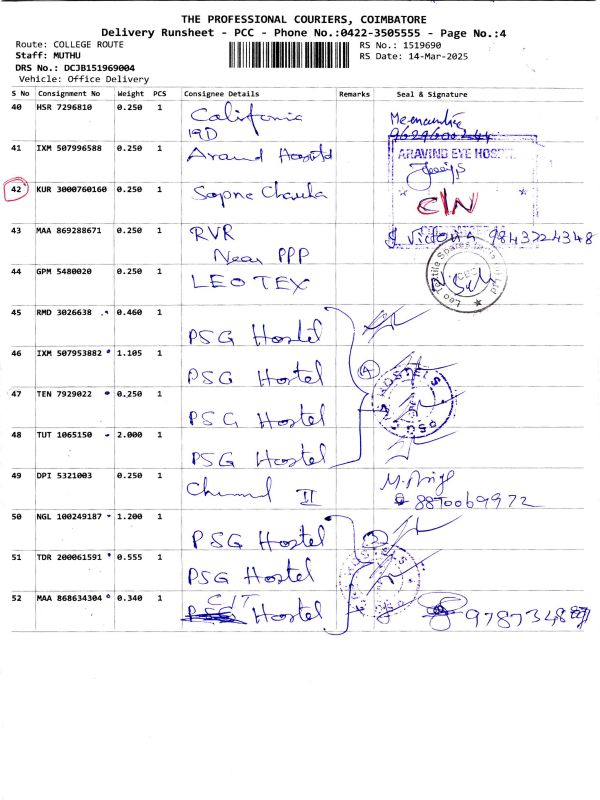 THE PROFESSIONAL COURIERS, COIMBATORE
Delivery Runsheet - PCC - Phone No.:0422-3505555 - Page No.:4
Route: COLLEGE ROUTE
RS No.: 1519690
Staff: MUTHU
RS Date: 14-Mar-2025
DRS No.: DCJB151969004
Vehicle: Office Delivery
S No Consignment No Weight PCS Consignee Details Remarks Seal & Signature
40 HSR 7296810 0.250 1 California
41 IXM 507996588 0.250 1 Aravind Hospital
ARAVIND EYE HOSPI
42 KUR 3000760160 0.250 1 Sapne Chawla
C/N
43 MAA 869288671 0.250 1 RVR
Near PPP
J. Victoria 9843224348
44 GPM 5480020 0.250 1 LEO TEX
45 RMD 3026638 0.460 1 PSG Hostel
46 IXM 507953882 1.105 1 PSG Hostel
4
47 TEN 7929022 0.250 1 PSG Hostel
48 TUT 1065150 2.000 1 PSG Hostel
49 DPI 5321003 0.250 1 II
8870069972
50 NGL 100249187 1.200 1 PSG Hostel
51 TDR 200061591 0.555 1 PSG Hostel
52 MAA 868634304 0.340 1 CIT
Hostel